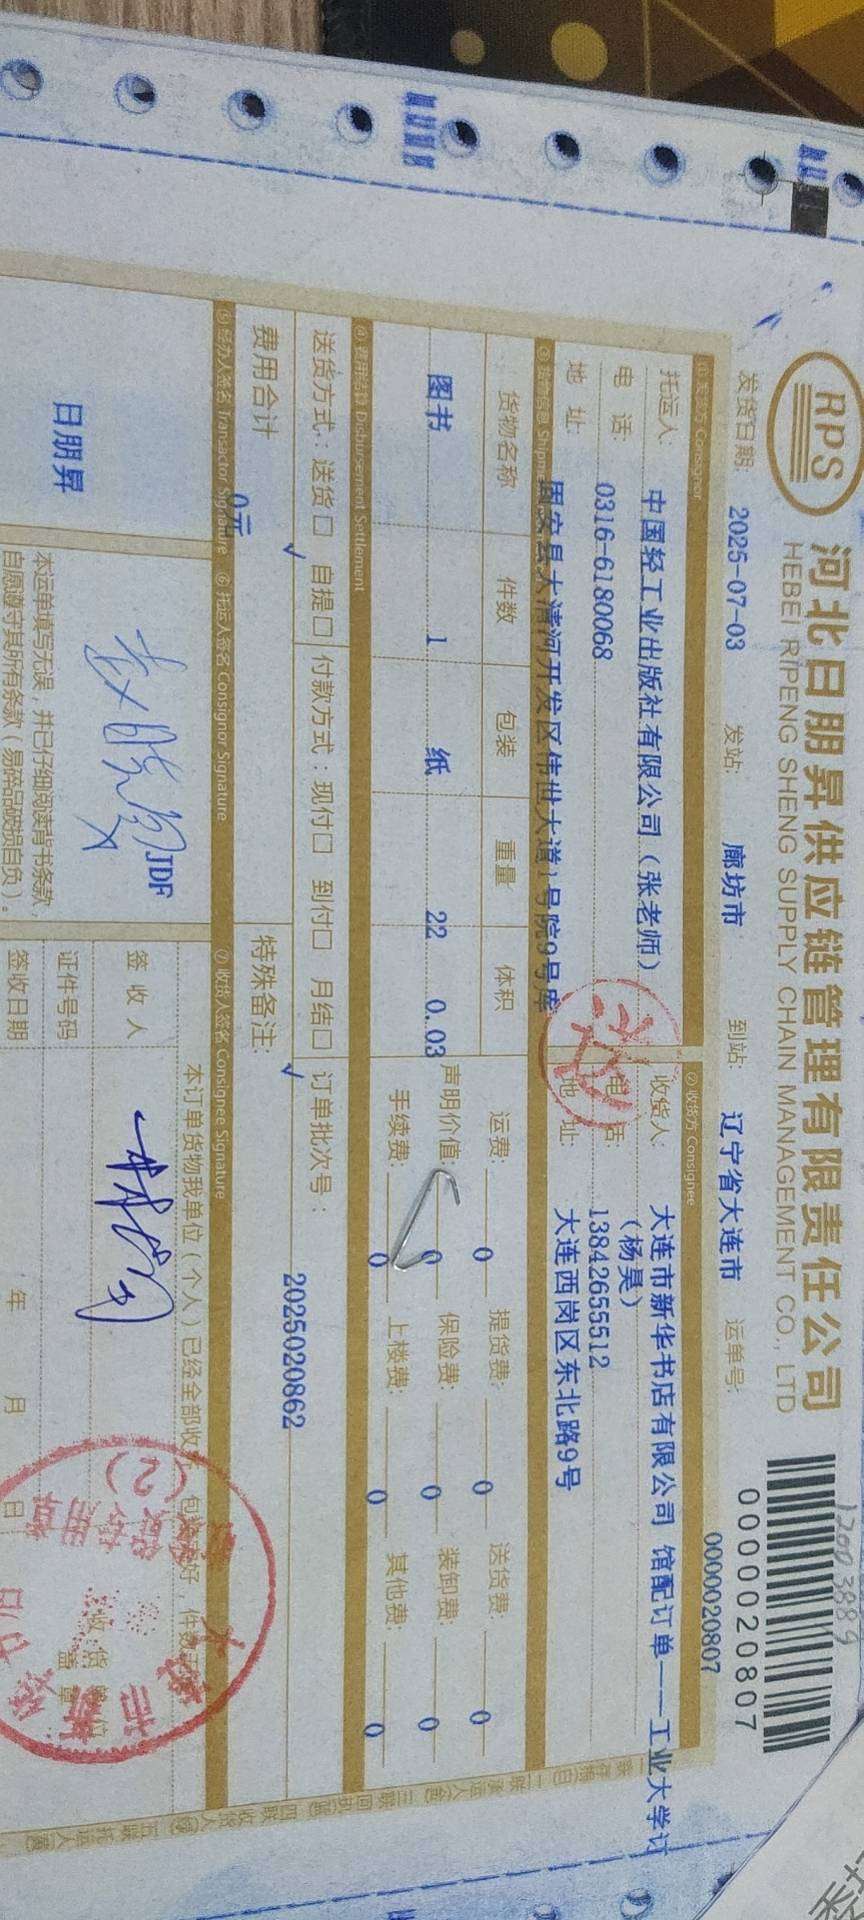 RPS
河北日朋昇供应链管理有限责任公司
HEBEI RIPENG SHENG SUPPLY CHAIN MANAGEMENT CO., LTD
12003889
0000020807
发货日期: 2025-07-03 发站: 廊坊市 到站: 辽宁省大连市 运单号: 0000020807
① 发货方 Consignor ② 收货方 Consignee
托运人: 中国轻工业出版社有限公司(张老师) 收货人: 大连市新华书店有限公司 馆配订单——工业大学订
(杨昊)
电 话: 0316-6180068 电 话: 13842655512
地 址: 固安县大清河开发区伟世大道1号院9号库 地 址: 大连西岗区东北路9号
货物名称 件数 包装 重量 体积 运费: 0 提货费: 0 送货费: 0
图书 1 纸 22 0.03 声明价值: 0 保险费: 0 装卸费: 0
手续费: 0 上楼费: 0 其他费: 0
④ 费用结算 Disbursement Settlement
送货方式: 送货☐ 自提☐ 付款方式: 现付☐ 到付☐ 月结☐ 订单批次号: 2025020862
✓ ✓
费用合计 0元 特殊备注:
⑤ 经办人签名 Transactor Signature ⑥ 托运人签名 Consignor Signature ⑦ 收货人签名 Consignee Signature
日朋昇
JDF
本运单填写无误,并已仔细阅读背书条款,
自愿遵守其所有条款(易碎品破损自负)。
本订单货物我单位(个人)已经全部收
签 收 人
证件号码
签收日期 年 月 日
(2)